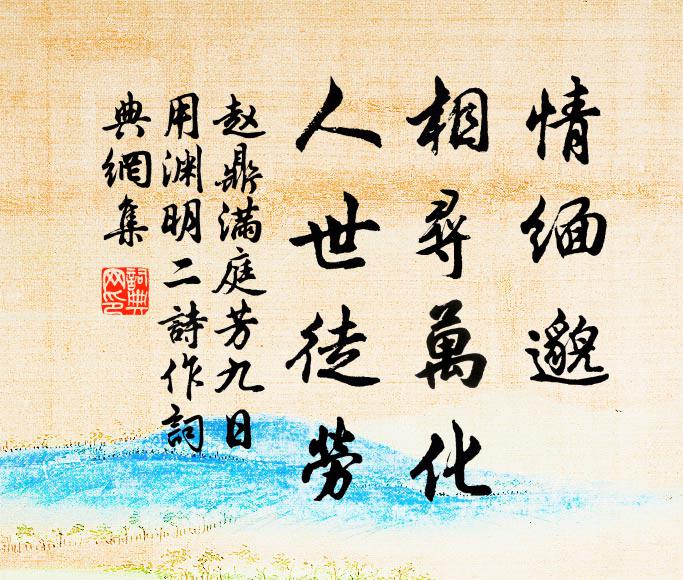 情緬邈
相尋萬化
人世徒勞
赵鼎满庭芳九日
用渊明二詩作詞
典網集
詞典
网印